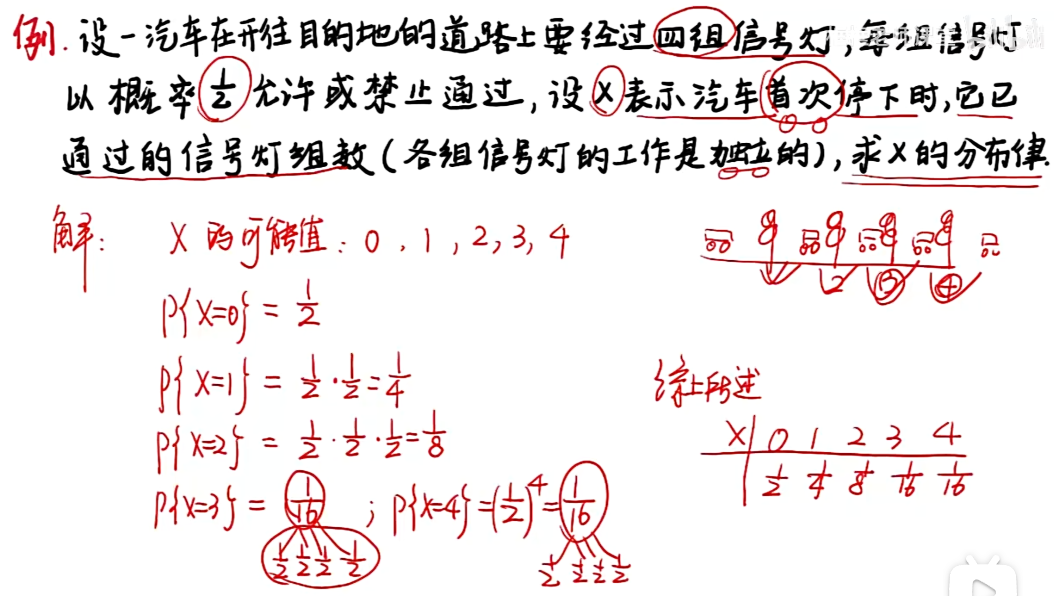 例. 设一汽车在开往目的地的道路上要经过四组信号灯, 每组信号灯
以概率 1/2 允许或禁止通过, 设 X 表示汽车首次停下时, 它已
通过的信号灯组数 (各组信号灯的工作是独立的), 求 X 的分布律.
解: X 的可能值: 0, 1, 2, 3, 4
1 2 3 4
P{X=0} = 1/2
P{X=1} = 1/2 · 1/2 = 1/4
P{X=2} = 1/2 · 1/2 · 1/2 = 1/8
P{X=3} = 1/16 ; P{X=4} = (1/2)^4 = 1/16
1/2 1/2 1/2 1/2 1/2 1/2 1/2 1/2
综上所述
X 0 1 2 3 4
1/2 1/4 1/8 1/16 1/16